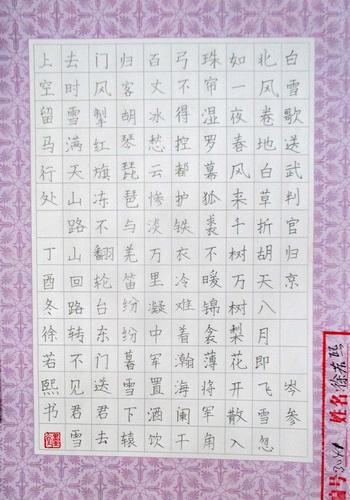 白雪歌送武判官归京 岑参
北风卷地白草折胡天八月即飞雪忽
如一夜春风来千树万树梨花开散入
珠帘湿罗幕狐裘不暖锦衾薄将军角
弓不得控都护铁衣冷难着瀚海阑干
百丈冰愁云惨淡万里凝中军置酒饮
归客胡琴琵琶与羌笛纷纷暮雪下辕
门风掣红旗冻不翻轮台东门送君去
去时雪满天山路山回路转不见君雪
上空留马行处 丁酉冬徐若熙书
姓名 徐若熙